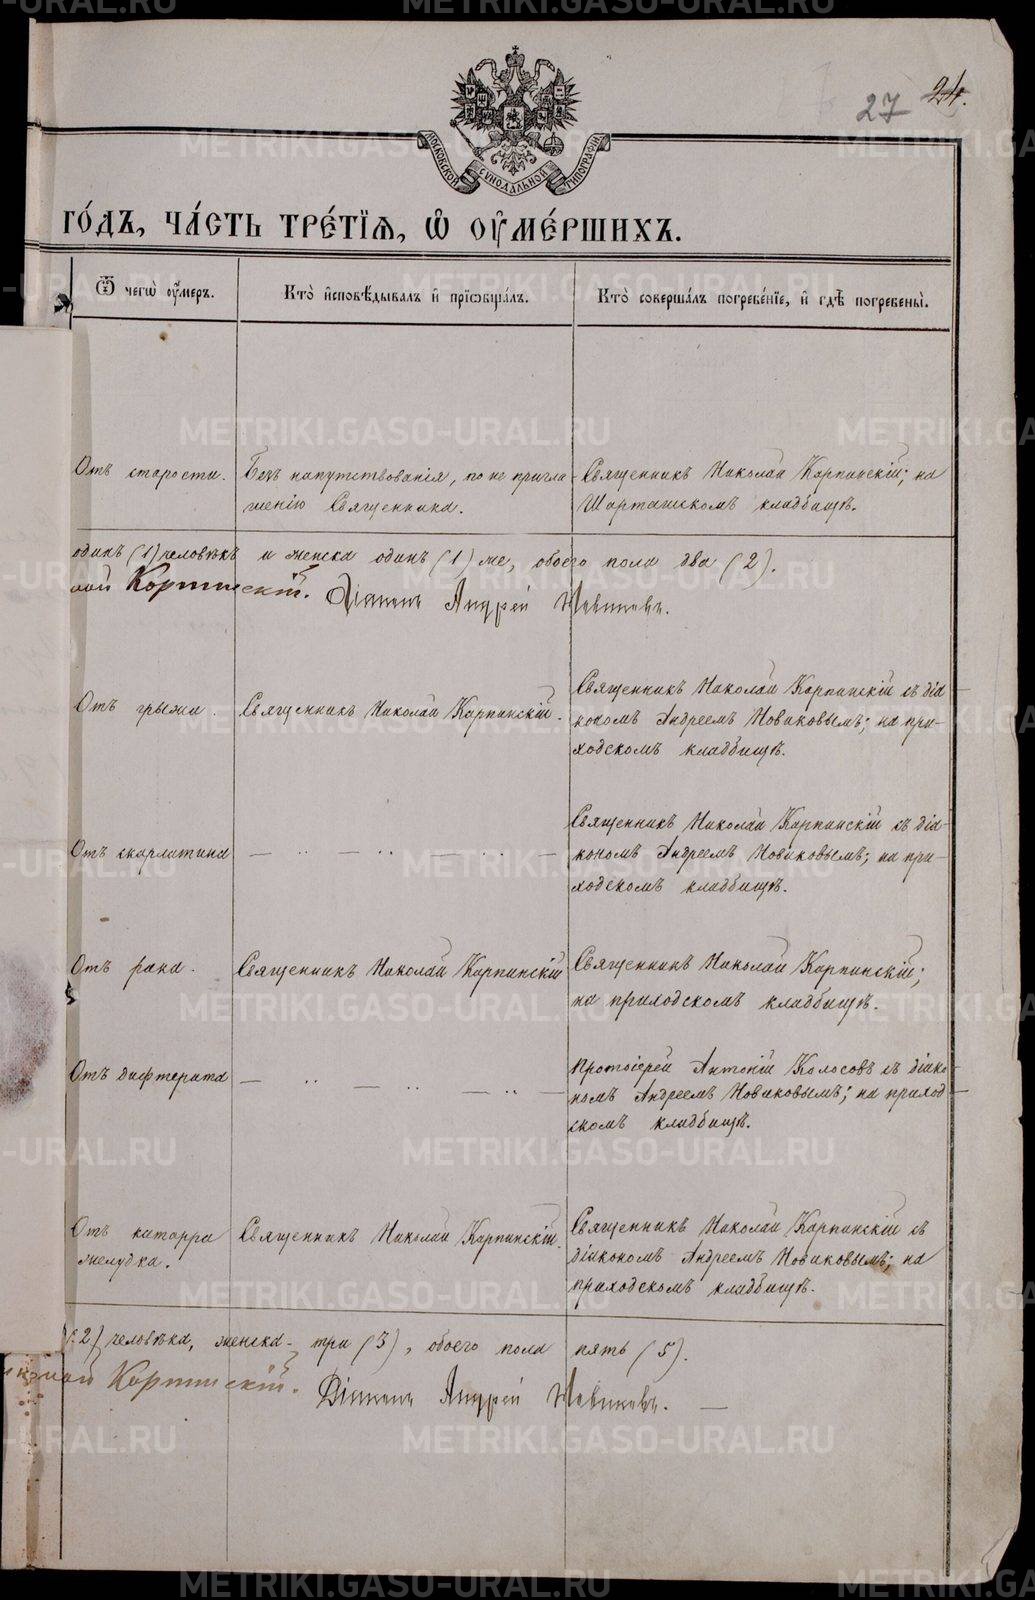 27 24.
МОСКОВСКОЙ СУНОДАЛЬНОЙ ТИПОГРАФІИ
ГО́ДЪ, ЧА́СТЬ ТРЕ́ТІЯ, Ѡ҆ ОУ҆МЕ́РШИХЪ.
Ѿ чегѡ̀ оу҆́меръ.
Кто̀ и҆сповѣ́дывалъ и҆ прїѡбща́лъ.
Кто̀ соверша́лъ погребе́нїе, и҆ гдѣ̀ погребены̀.
Отъ старости.
Безъ напутствованія, по не пригла
шенію Священника.
Священникъ Николай Карпинскій; на
Шарташскомъ кладбищѣ.
одинъ (1) человѣкъ и женска одинъ (1) же, обоего пола два (2).
лай Карпинскій. Діаконъ Андрей Новиковъ.
Отъ грыжи.
Священникъ Николай Карпинскій.
Священникъ Николай Карпинскій съ діа
кономъ Андреемъ Новиковымъ; на при-
ходскомъ кладбищѣ.
Отъ скарлатина
— ,, — ,, — ,, —
Священникъ Николай Карпинскій съ діа-
кономъ Андреемъ Новиковымъ; на при-
ходскомъ кладбищѣ.
Отъ рака.
Священникъ Николай Карпинскій
Священникъ Николай Карпинскій;
на приходскомъ кладбищѣ.
Отъ дифтерита
— ,, — ,, — ,, —
Протоіерей Антоній Колосовъ съ діако-
номъ Андреемъ Новиковымъ; на приход-
скомъ кладбищѣ.
Отъ катарра
желудка.
Священникъ Николай Карпинскій.
Священникъ Николай Карпинскій съ
діакономъ Андреемъ Новиковымъ; на
приходскомъ кладбищѣ.
(2) человѣка, женска- три (3), обоего пола пять (5).
николай Карпинскій. Діаконъ Андрей Новиковъ. —
METRIKI.GASO-URAL.RU